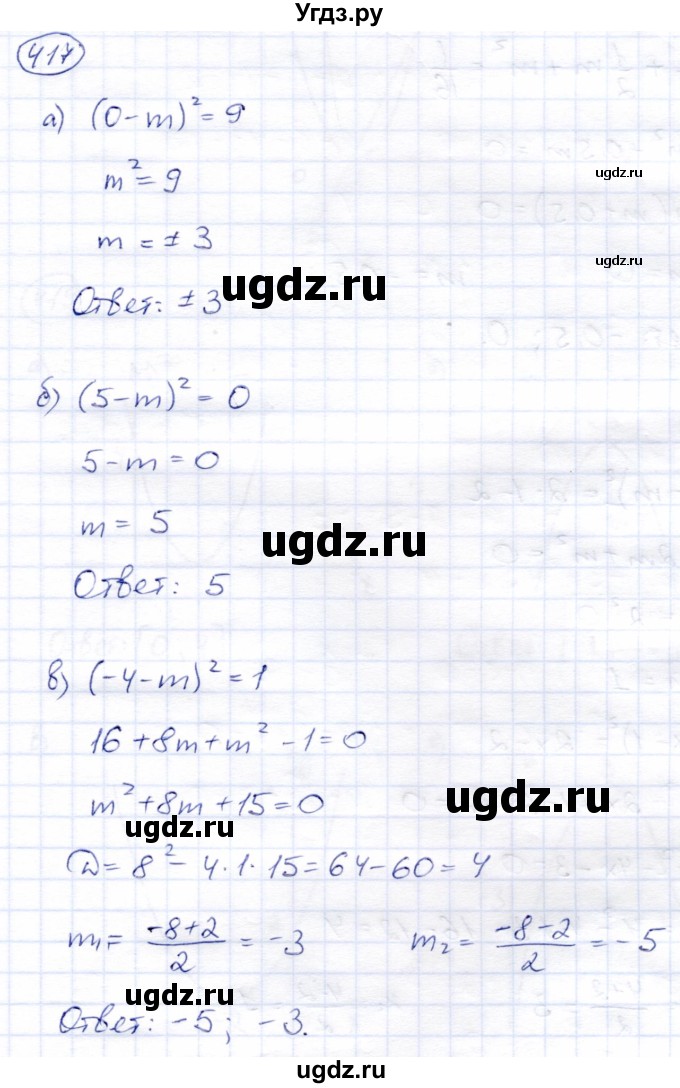 Угдз.ру
417
а) (0-m)² = 9
ugdz.ru
m² = 9
m = ± 3
ugdz.ru
ugdz.ru
Ответ: ± 3
б) (5-m)² = 0
5-m = 0
m = 5
ugdz.ru
Ответ: 5
в) (-4-m)² = 1
16+8m+m²-1=0
m²+8m+15=0
ugdz.ru
ugdz.ru
D = 8² - 4·1·15 = 64-60 = 4
m₁ = (-8+2)/2 = -3 m₂ = (-8-2)/2 = -5
ugdz.ru
Ответ: -5; -3.
ugdz.ru